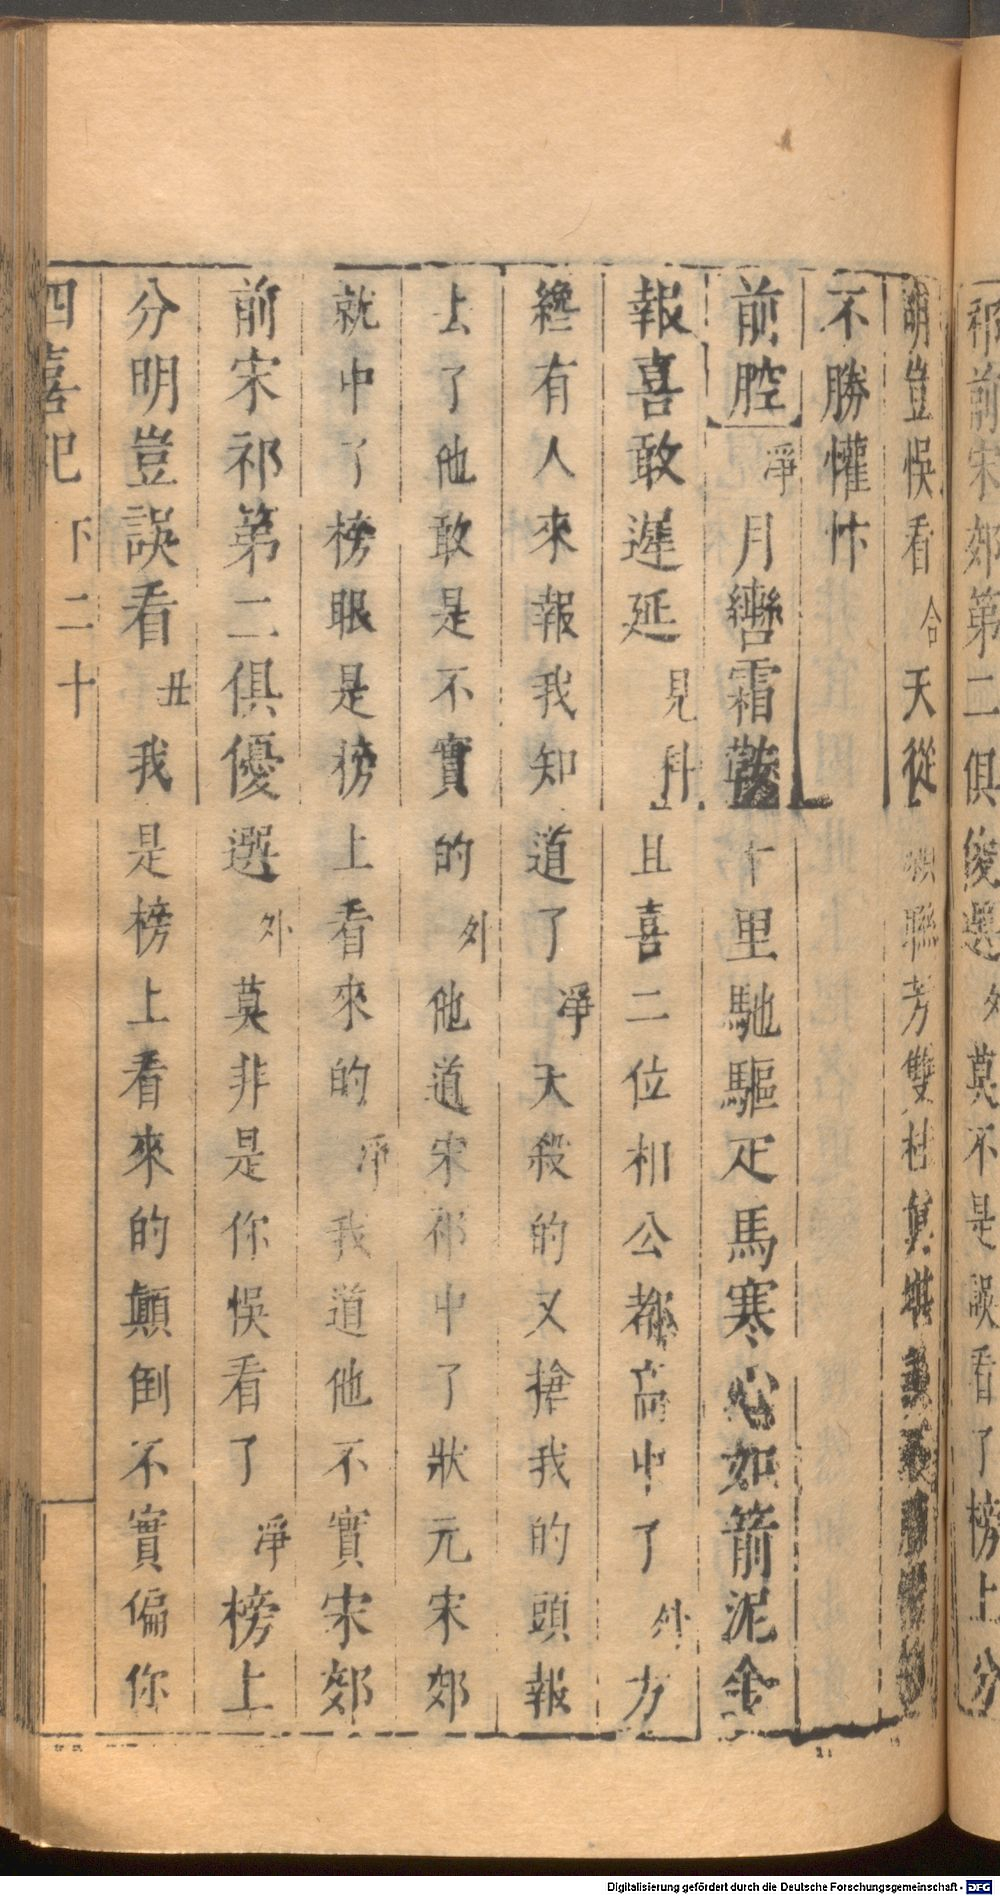 祁前宋郊第二俱優選外莫不是誤看了榜上分
明豈悞看合天從聯芳雙桂
不勝懽忭
前腔淨月轡霜鞍十里馳驅疋馬寒心如箭泥金
報喜敢遲延見科且喜二位相公都高中了外方
纔有人來報我知道了淨天殺的又搶我的頭報
上了他敢是不實的外他道宋祁中了狀元宋郊
就中了榜眼是榜上看來的淨我道他不實宋郊
前宋祁第二俱優選外莫非是你悞看了淨榜上
分明豈誤看丑我是榜上看來的顛倒不實偏你
四喜記 下 二十
Digitalisierung gefördert durch die Deutsche Forschungsgemeinschaft - DFG